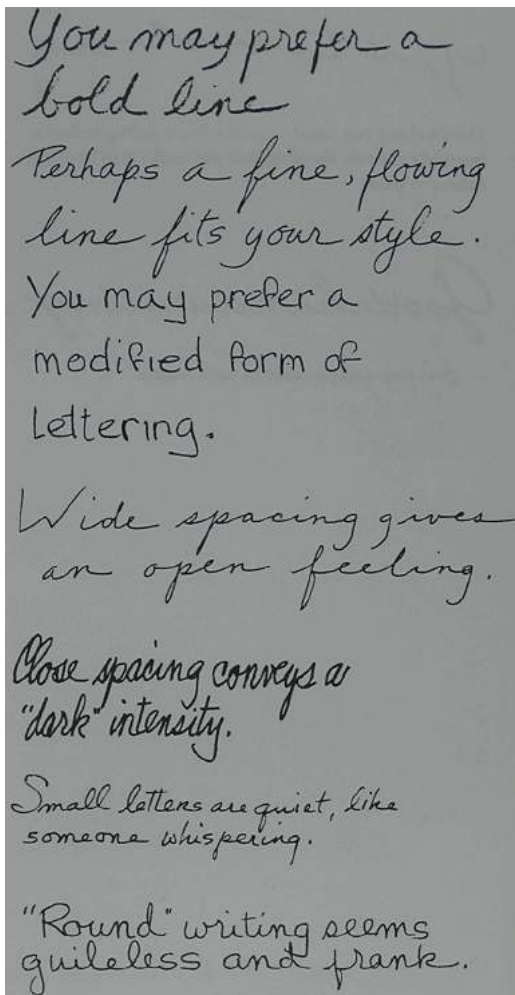 You may prefer a
bold line
Perhaps a fine, flowing
line fits your style.
You may prefer a
modified form of
lettering.
Wide spacing gives
an open feeling.
Close spacing conveys a
"dark" intensity.
Small letters are quiet, like
someone whispering.
"Round" writing seems
guileless and frank.